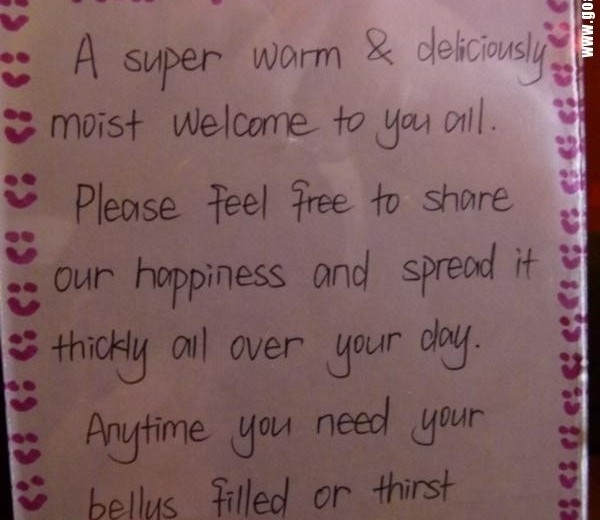 A super warm & deliciously
moist welcome to you all.
Please feel free to share
our happiness and spread it
thickly all over your day.
Anytime you need your
bellys filled or thirst
www.go